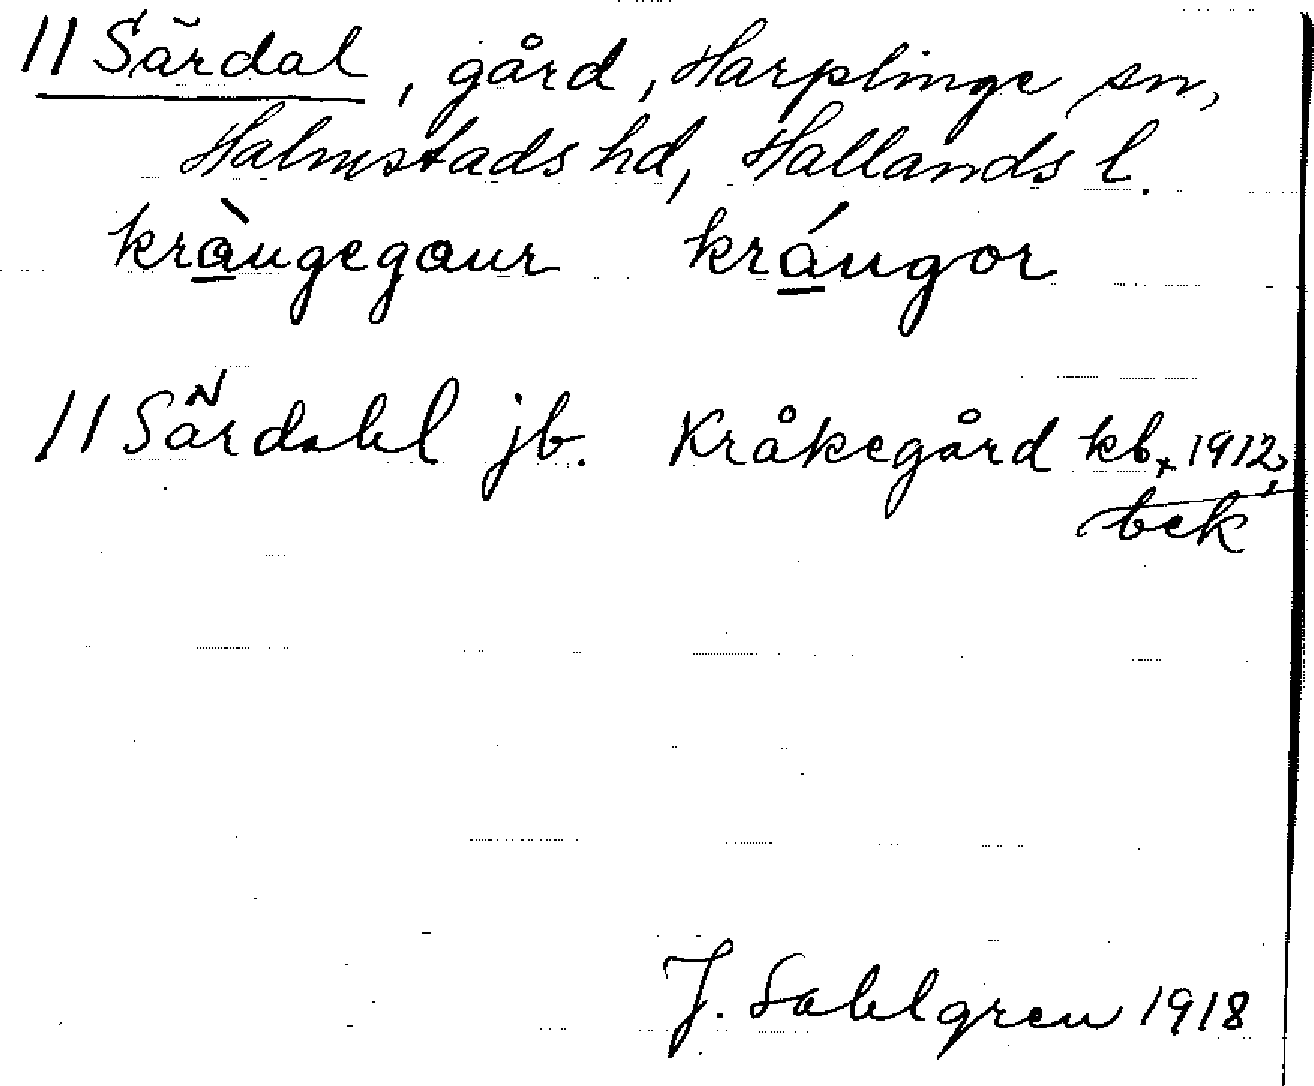 11 Särdal, gård, Harplinge sn,
Halmstads hd, Hallands l.
kràugegaur kráugor
11 Särdahl jb. Kråkegård kb, 1912,
bek
J. Sahlgren 1918